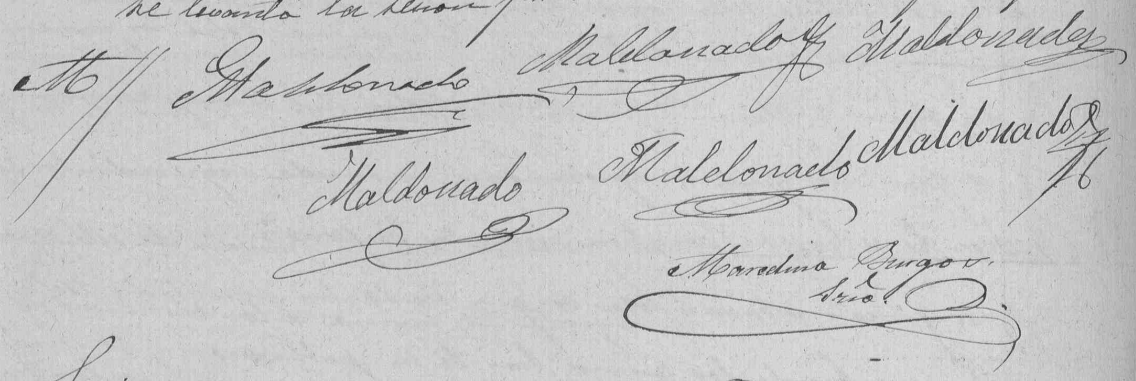 se levanto la sesion
M// Maldonado Maldonado Maldonado
Maldonado Maldonado Maldonado
Burgos.
Srio.